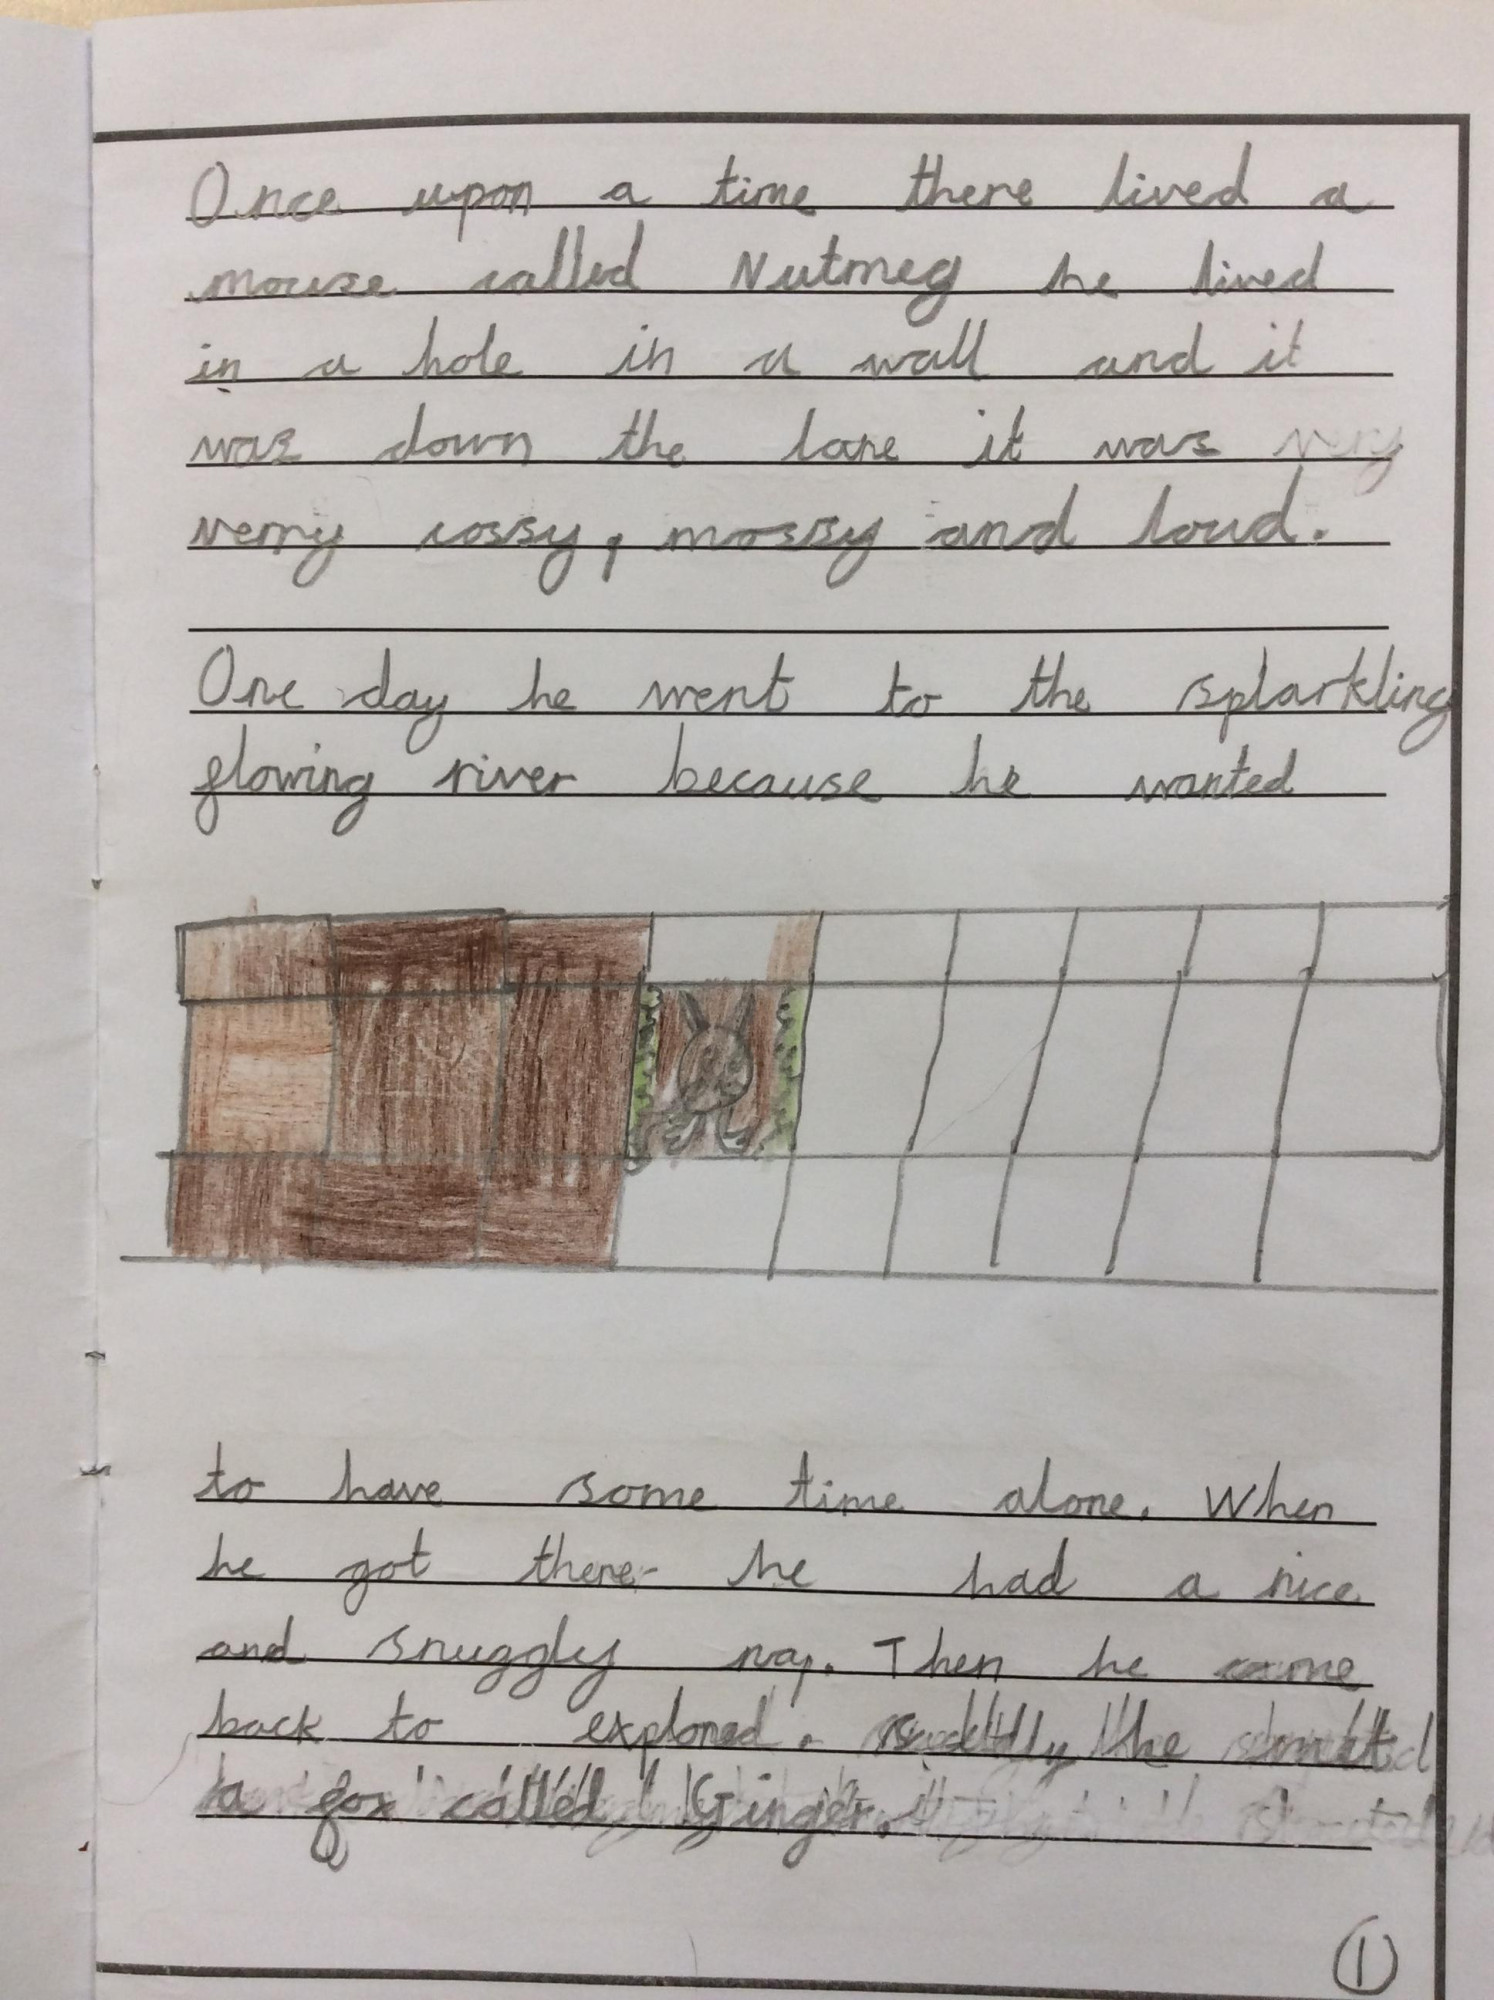 Once upon a time there lived a
mouse called Nutmeg he lived
in a hole in a wall and it
was down the lane it was very
verry cossy, mossy and loud.
One day he went to the splarkling
flowing river because he wanted
to have some time alone. When
he got there he had a nice
and snuggly nap. Then he came
back to explored. he
a fox called Ginger.
1